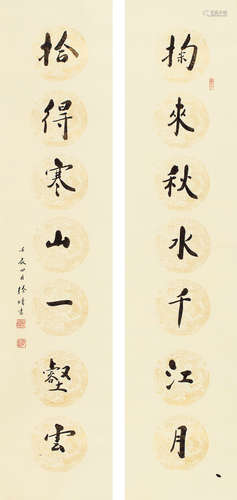 掬來秋水千江月
拾得寒山一壑雲
壬辰四月